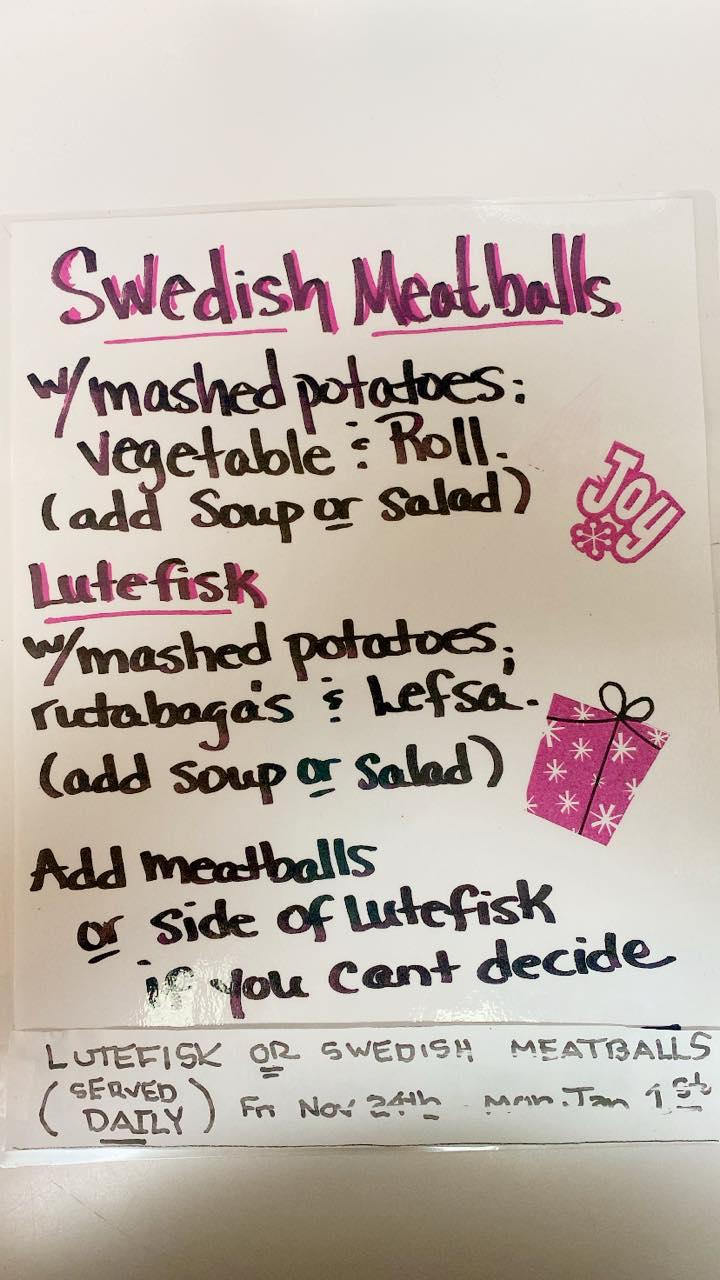 Swedish Meatballs
w/mashed potatoes;
vegetable & Roll.
(add Soup or Salad)
Joy
Lutefisk
w/mashed potatoes,
rutabaga's & Lefsa.
(add soup or salad)
Add meatballs
or side of Lutefisk
if you cant decide
LUTEFISK OR SWEDISH MEATBALLS
(SERVED DAILY) Fri Nov 24th - Mon. Jan 1st